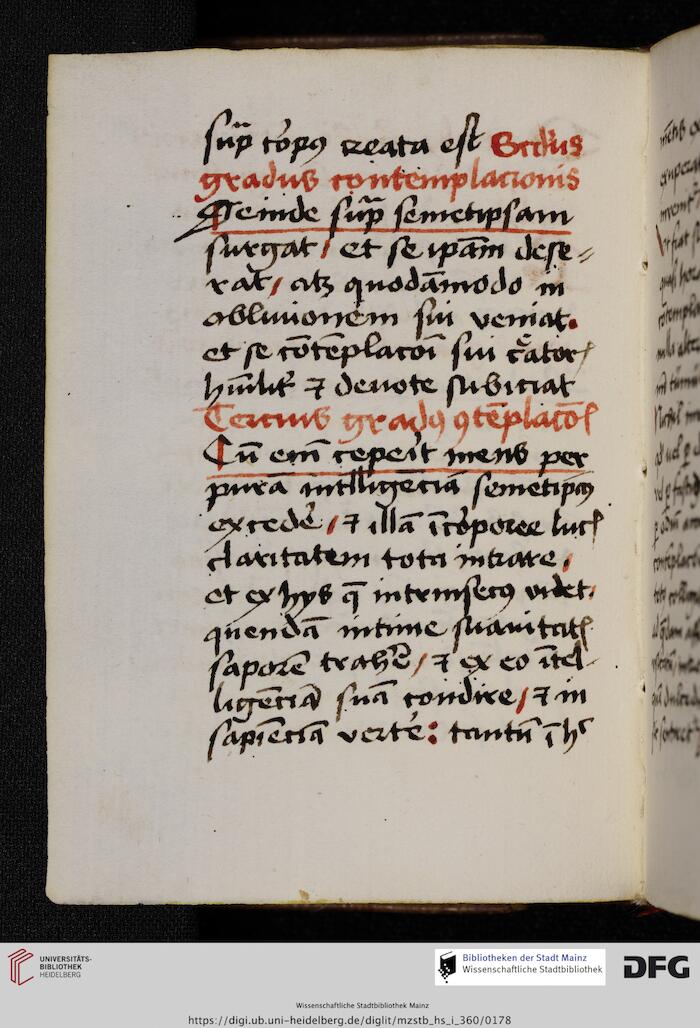 sup̄ corpꝯ creata est Scdus
gradus contemplacionis
Deinde sup̄ semetipsam
surgat / et se ipām dese⸗
rat / atꝫ quodāmodo in
obliuionem sui veniat.
et se cōtēplacōī sui c̄ator
hūilit᷑ ⁊ deuote subiciat
Tercius gradꝯ ꝯtēplacōis
Cū em̄ ceperit mens per
purā intelligēciā semetipꝯ
excedē / ⁊ illā īcorporee lucis
claritatem tota intrare /
et ex hys q̄ intrinsecꝯ videt /
quendā intime suauitatis
saporē trahē / ⁊ ex eo ītel-
ligēciā suā condire / ⁊ in
sapiēciā vertē : tantū ī h
UNIVERSITÄTS-
BIBLIOTHEK
HEIDELBERG
Bibliotheken der Stadt Mainz
Wissenschaftliche Stadtbibliothek
DFG
Wissenschaftliche Stadtbibliothek Mainz
https://digi.ub.uni-heidelberg.de/diglit/mzstb_hs_i_360/0178